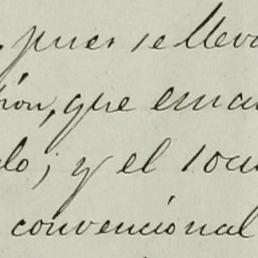 , pues se lleva
ción, que ema
do; y el
convencional